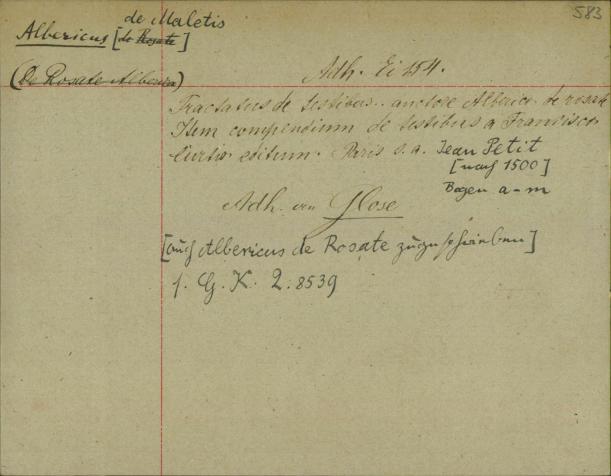 583
de Maletis
Albericus [de Rosate]
(De Rosate Alberic)
Adh. Ei 254.
Tractatus de testibus.. auctore Alberico de rosate
Item compendium de testibus a Francisco
Curtio editum. Paris s. a. Jean Petit
[nach 1500]
Bogen a-m
Adh. an Glose
[auch Albericus de Rosate zugeschrieben]
s. G. K. 2.8539